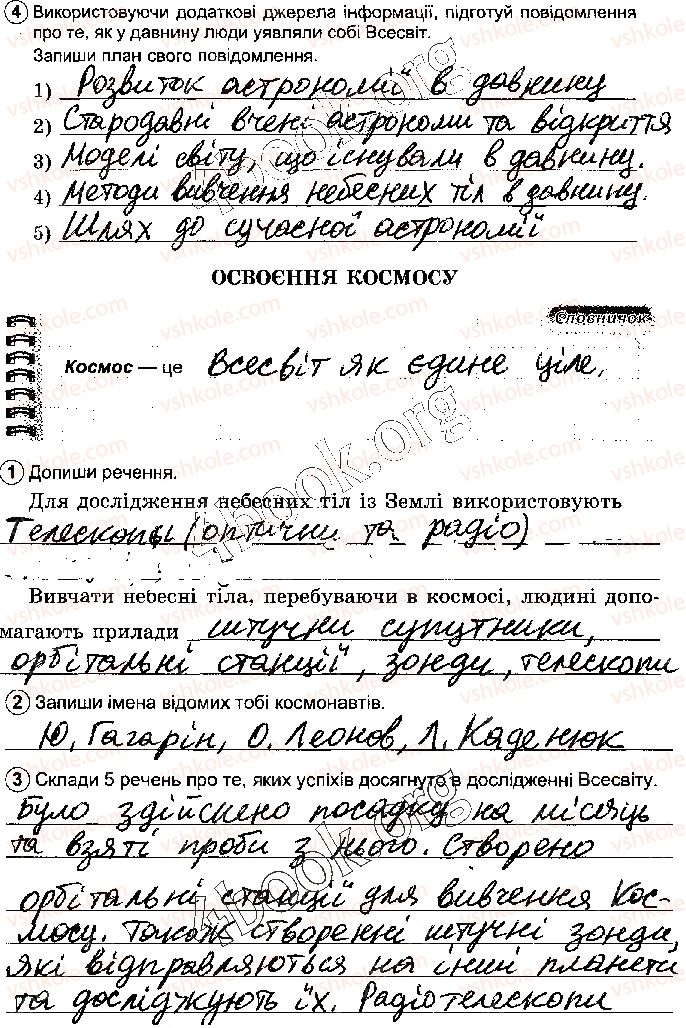 4 Використовуючи додаткові джерела інформації, підготуй повідомлення
про те, як у давнину люди уявляли собі Всесвіт.
Запиши план свого повідомлення.
1) Розвиток астрономії в давнину
2) Стародавні вчені астрономи та відкриття
3) Моделі світу, що існували в давнину.
4) Методи вивчення небесних тіл в давнину.
5) Шлях до сучасної астрономії
ОСВОЄННЯ КОСМОСУ
Словничок
Космос — це Всесвіт як єдине ціле.
1 Допиши речення.
Для дослідження небесних тіл із Землі використовують
Телескопы (оптични та радіо)
Вивчати небесні тіла, перебуваючи в космосі, людині допо-
магають прилади штучни супутники,
орбітальні станції, зонди, телескопи
2 Запиши імена відомих тобі космонавтів.
Ю. Гагарін, О. Леонов, Л. Каденюк
3 Склади 5 речень про те, яких успіхів досягнуто в дослідженні Всесвіту.
Було здійснено посадку на місяць
та взяті проби з нього. Створено
орбітальні станції для вивчення Кос-
мосу. Також створенні штучні зонди,
які відправляються на інші планети
та досліджують їх. Радіотелескопи
4book.org
vshkole.com